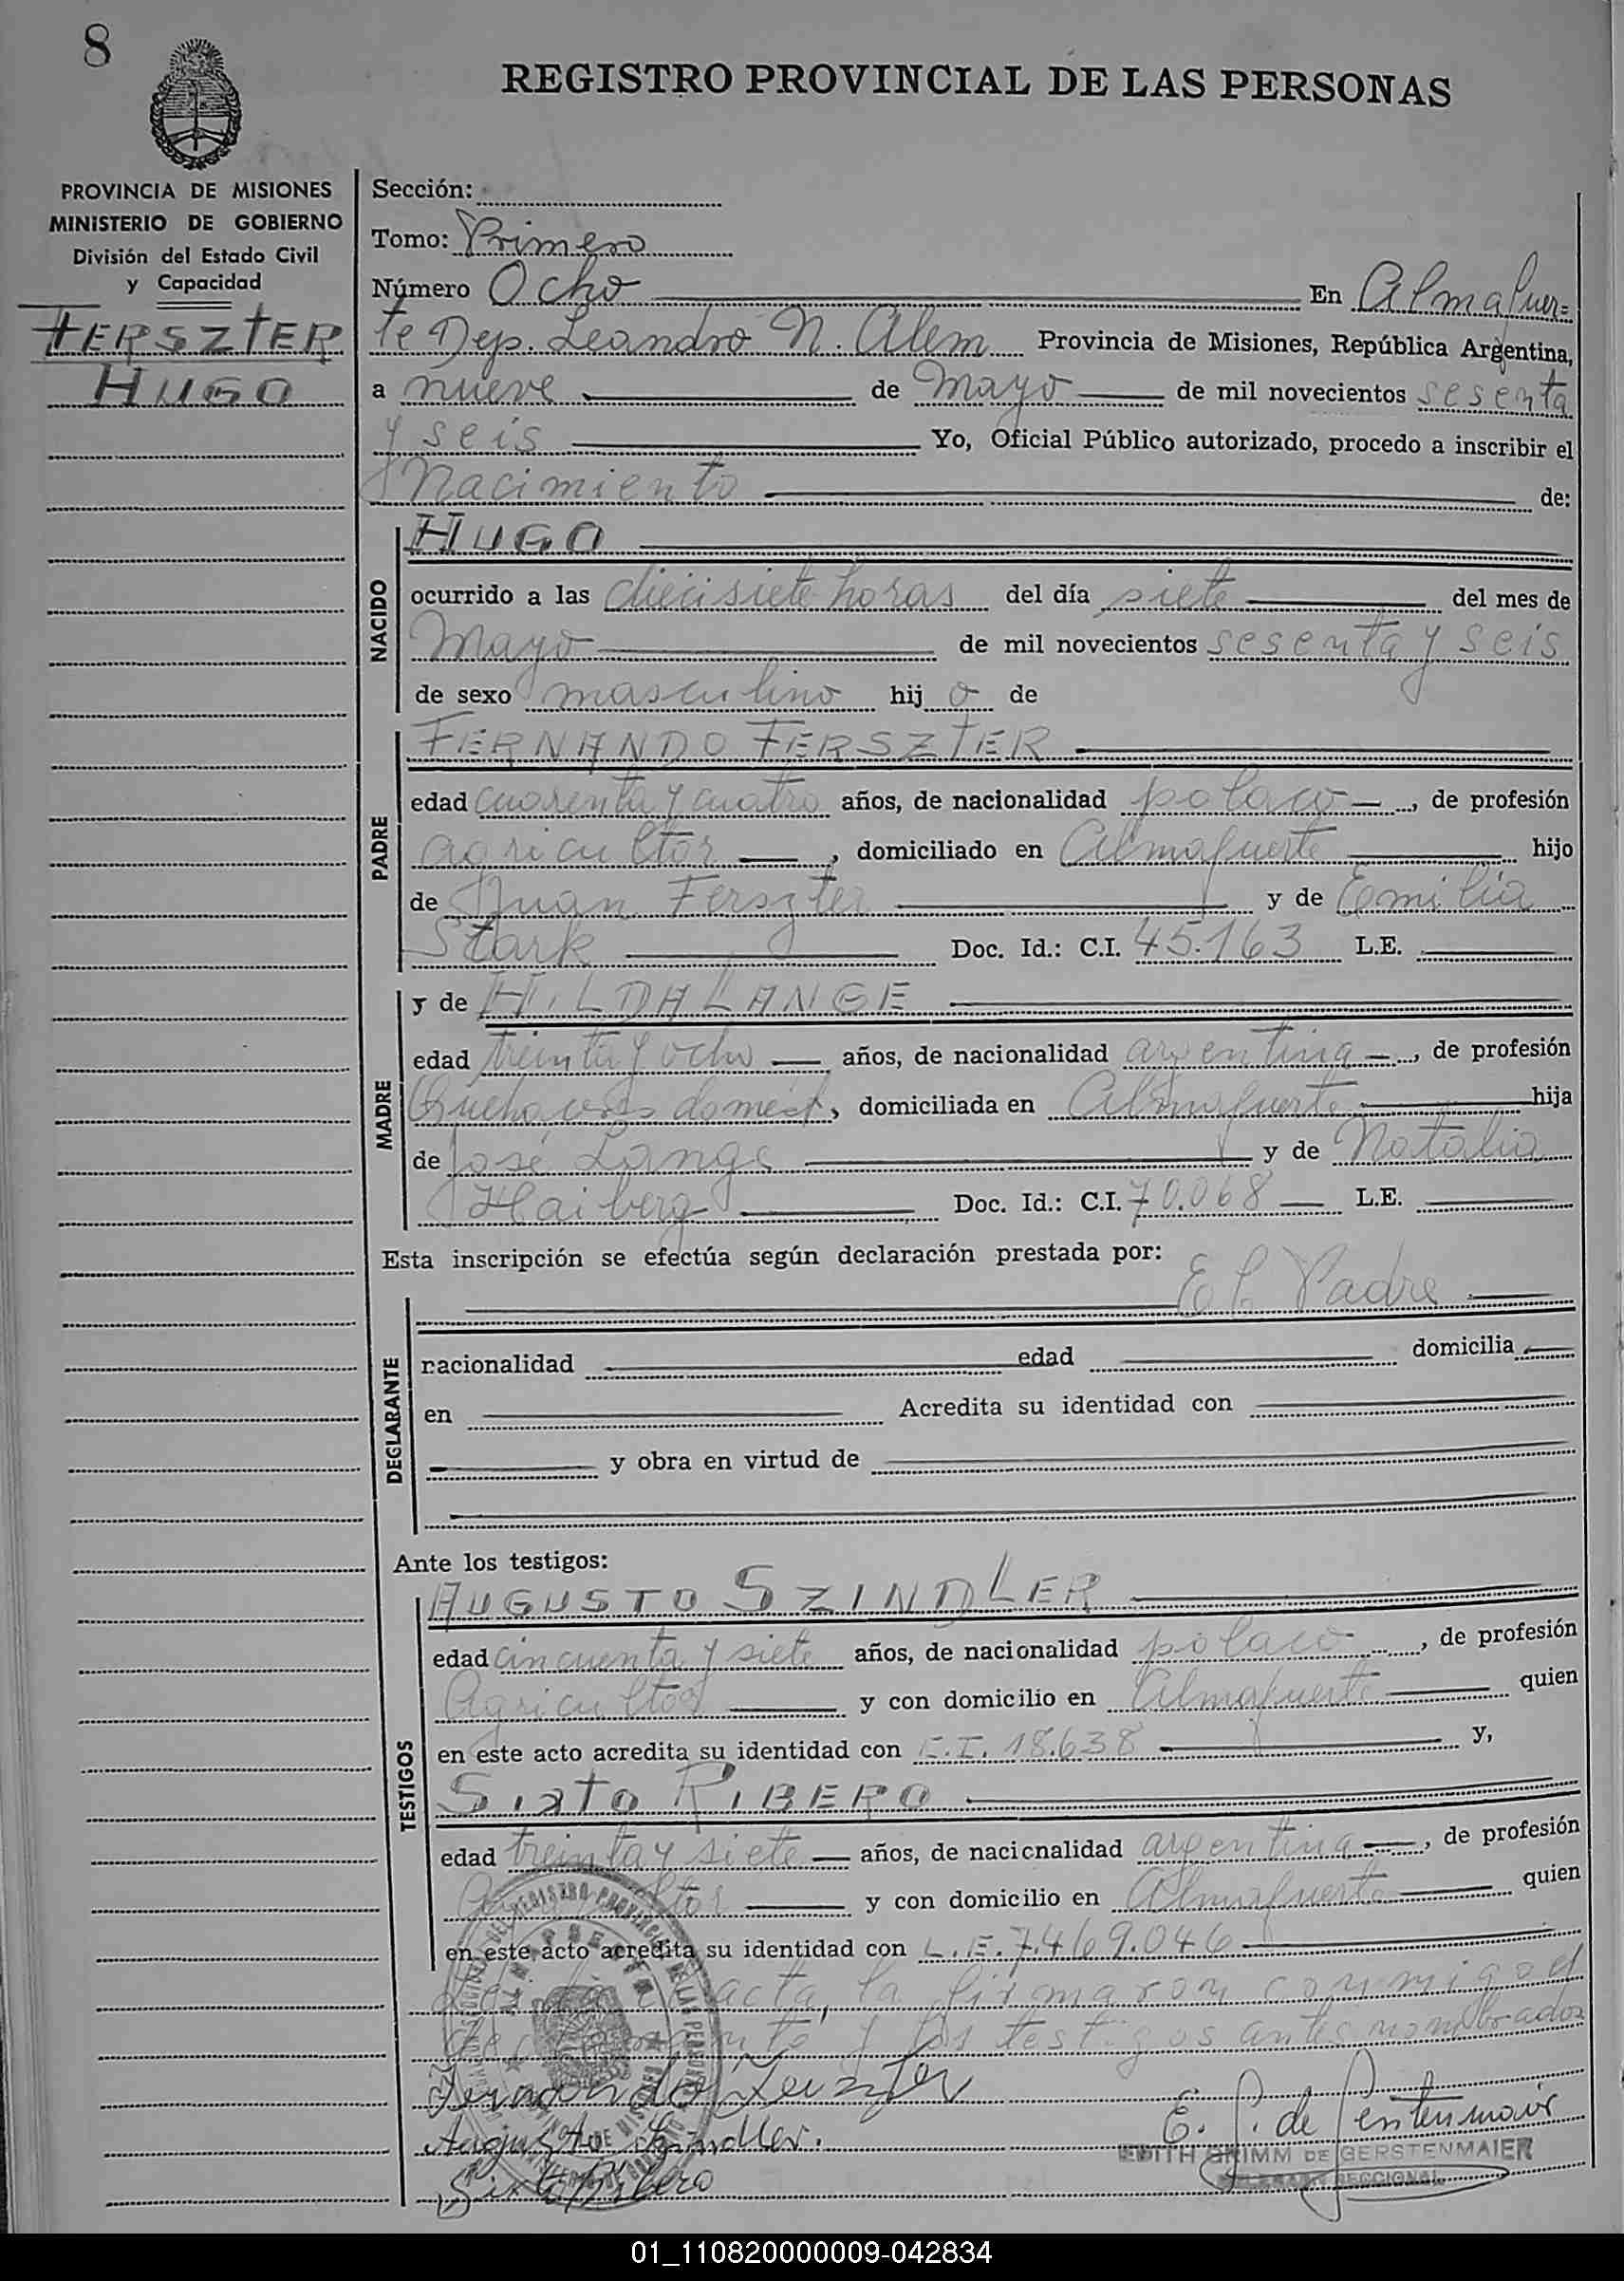 8
REGISTRO PROVINCIAL DE LAS PERSONAS
PROVINCIA DE MISIONES
MINISTERIO DE GOBIERNO
División del Estado Civil
y Capacidad
FERSZTER
HUGO
Sección:
Tomo: Primero
Número Ocho En Almafuer=
te Dep. Leandro N. Alem Provincia de Misiones, República Argentina,
a nueve de Mayo de mil novecientos sesenta
y seis Yo, Oficial Público autorizado, procedo a inscribir el
Nacimiento de:
NACIDO
HUGO
ocurrido a las diecisiete horas del día siete del mes de
Mayo de mil novecientos sesenta y seis
de sexo masculino hij o de
PADRE
FERNANDO FERSZTER
edad cuarenta y cuatro años, de nacionalidad polaco, de profesión
agricultor, domiciliado en Almafuerte hijo
de Juan Ferszter y de Emilia
Stark Doc. Id.: C.I. 45.163 L.E.
MADRE
y de HILDA LANGE
edad treinta y ocho años, de nacionalidad argentina, de profesión
Quehaceres domést, domiciliada en Almafuerte hija
de José Lange y de Natalia
Haiberg Doc. Id.: C.I. 70.068 L.E.
Esta inscripción se efectúa según declaración prestada por:
El Padre
DECLARANTE
racionalidad edad domicilia
en Acredita su identidad con
y obra en virtud de
Ante los testigos:
TESTIGOS
AUGUSTO SZINDLER
edad cincuenta y siete años, de nacionalidad polaco, de profesión
Agricultor y con domicilio en Almafuerte quien
en este acto acredita su identidad con C.I. 18.638 y,
Sixto RIBERO
edad treinta y siete años, de nacionalidad argentina, de profesión
y con domicilio en Almafuerte quien
en este acto acredita su identidad con L.E. 7.469.046
acta, la firmaron conmigo el
y los testigos antes nombrados
Fernando Ferszter
Augusto Szindler.
Sixto Ribero
E. G. de Gerstenmaier
EDITH GRIMM DE GERSTENMAIER
SECCIONAL
01_110820000009-042834